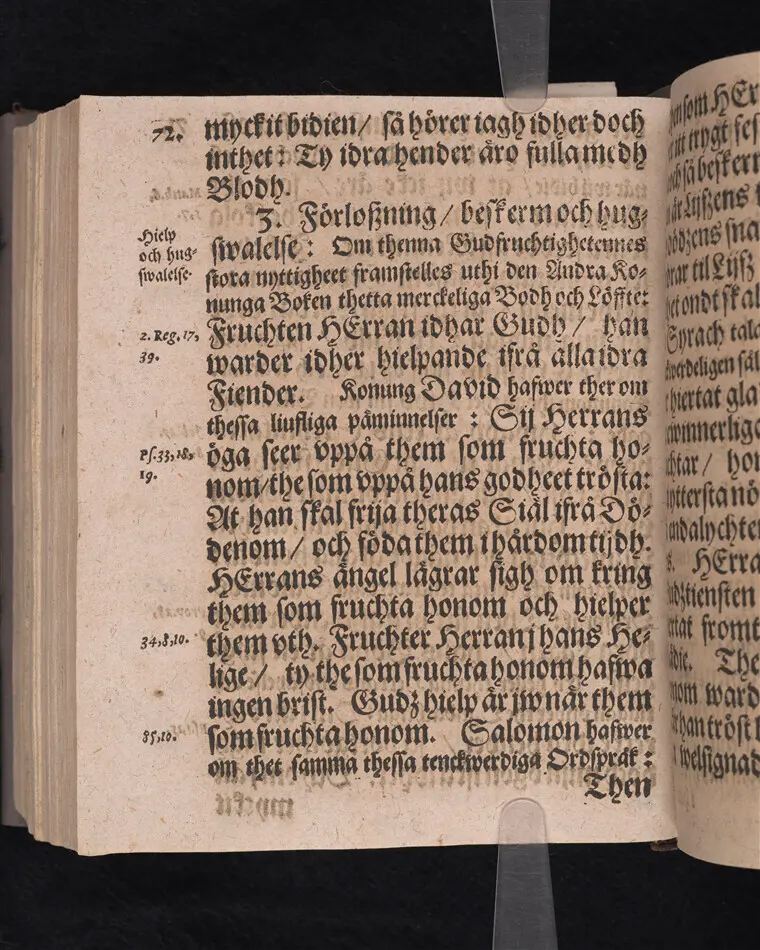 72.
myckit bidien / så hörer iagh idher doch
inthet: Ty idra hender äro fulla medh
Blodh.
3. Förloßning / beskerm och hug-
swalelse: Om thenna Gudfruchtighetennes
stora nyttigheet framstelles uthi den Andra Ko-
nunga Boken thetta merckeliga Bodh och Löffte:
Fruchten HErran idhar Gudh / han
warder idher hielpande ifrå alla idra
Fiender. Konung David hafwer ther om
thessa liufliga påminnelser: Sij Herrans
öga seer vppå them som fruchta ho-
nom / the som vppå hans godheet trösta:
At han skal frija theras Siäl ifrå Dö-
denom / och föda them i hårdom tijdh.
HErrans ängel lägrar sigh om kring
them som fruchta honom och hielper
them vth. Fruchter Herran j hans He-
lige / ty the som fruchta honom hafwa
ingen brist. Gudz hielp är jw när them
som fruchta honom. Salomon hafwer
om thet samma thessa tenckwerdiga Ordspråk:
Then
Hielp
och hug-
swalelse.
2. Reg. 17,
39.
Ps. 33, 18,
19.
34, 8, 10.
85, 10.